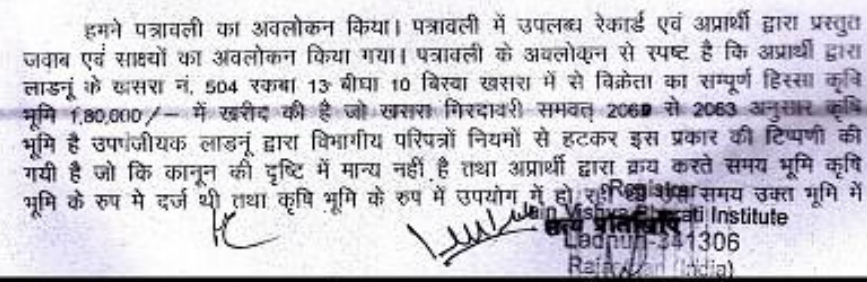 हमने पत्रावली का अवलोकन किया। पत्रावली में उपलब्ध रेकार्ड एवं अप्रार्थी द्वारा प्रस्तुत
जवाब एवं साक्ष्यों का अवलोकन किया गया। पत्रावली के अवलोकन से स्पष्ट है कि अप्रार्थी द्वारा
लाडनूं के खसरा नं. 504 रकबा 13 बीघा 10 बिस्वा खसरा में से विक्रेता का सम्पूर्ण हिस्सा कृषि
भूमि 1,80,000/– में खरीद की है जो खसरा गिरदावरी समवत् से 2063 अनुसार कृषि
भूमि है उपपंजीयक लाडनूं द्वारा विभागीय परिपत्रों नियमों से हटकर इस प्रकार की टिप्पणी की
गयी है जो कि कानून की दृष्टि में मान्य नहीं है तथा अप्रार्थी द्वारा क्रय करते समय भूमि कृषि
भूमि के रुप मे दर्ज थी तथा कृषि भूमि के रुप में उपयोग में हो रही समय उक्त भूमि में
Registrar
Jain Vishva Bharati Institute
सत्य प्रतिलिपि
Ladnun-341306
Rajasthan (India)